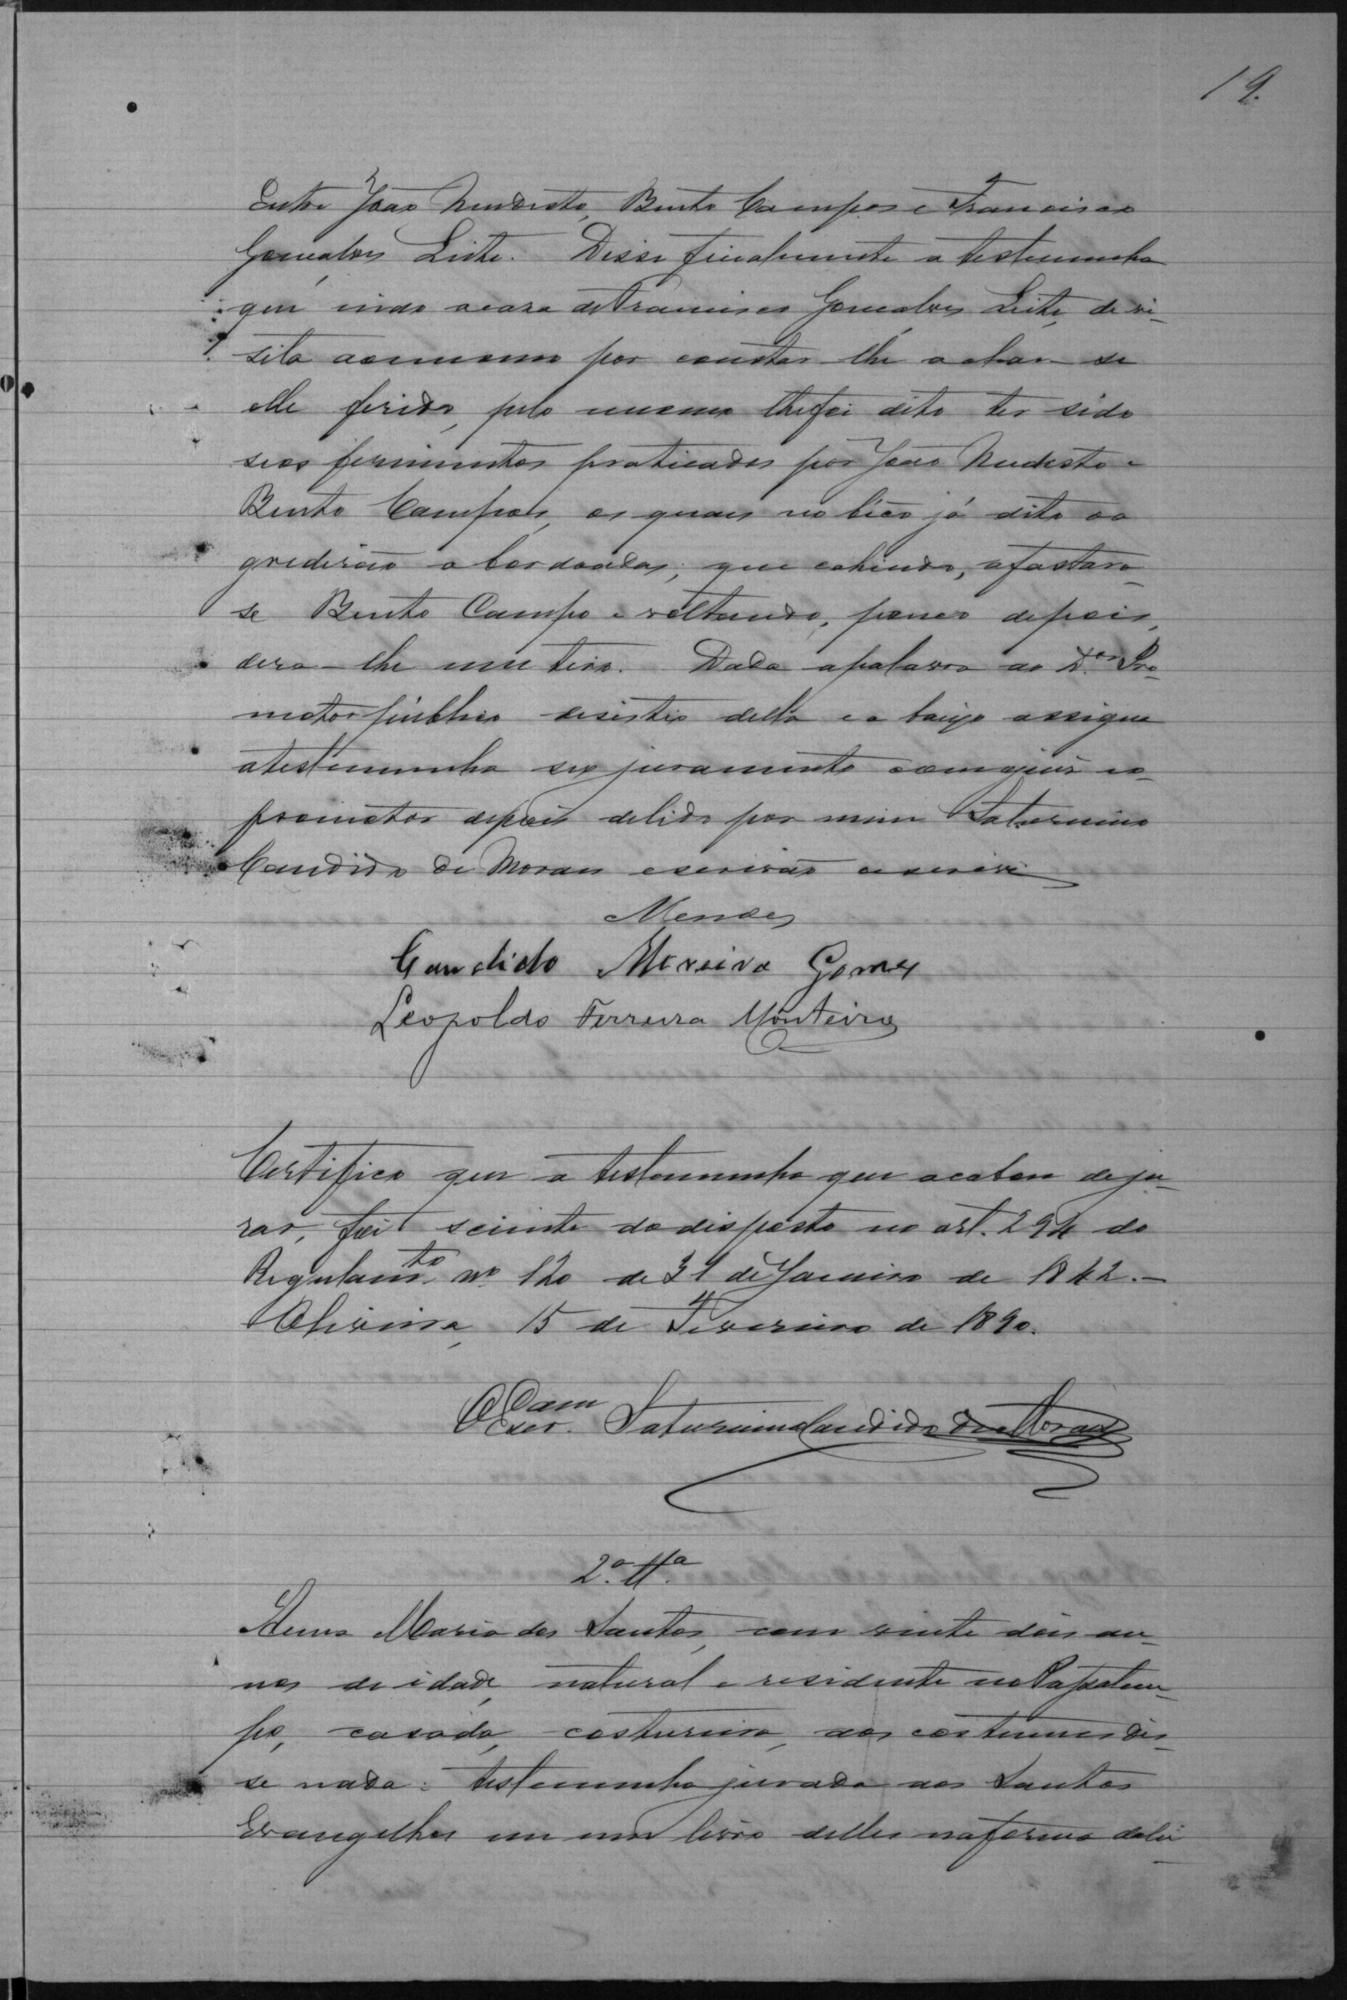 19.
Entre João Mudesto, Bento Campos e Francisco
Goncalves Leite. Disse finalmente a testemunha
que indo a caza de Francisco Goncalves Leite, de vi-
sita ao mesmo por constar lhe achar se
elle ferido, pelo mesmo lhe foi dito ter sido
seos ferimentos praticados por João Mudesto e
Bento Campos, os quais no bêco já dito o a
gredirão a bordoadas, que cahindo, afastara
se Bento Campo e voltando, pouco depois,
dera-lhe um tiro. Dada a palavra ao Dor Pro-
motor publico desistio della e a baixo assigna
a testemunha seo juramento com o juis e o
promotor depois de lido por mim Saturnino
Candido de Moraes escrivão o escrevi
Mendes
Candido Moreira Gomes
Leopoldo Ferreira Monteiro
Certifico que a testemunha que acabou de ju-
rar, foi sciente do disposto no art. 294 do
Regulamto nº 120 de 31 de Janeiro de 1842.-
15 de Fevereiro de 1890.
O Escr. Saturnino Candido de Moraes
2.ª Tta.
Anna Maria dos Santos, com vinte dois an-
nos de idade, natural e residente no
po, casada, costureira, aos costumes dis-
se nada: testemunha jurada aos Santos
Evangelhos em um livro delles na forma da lei